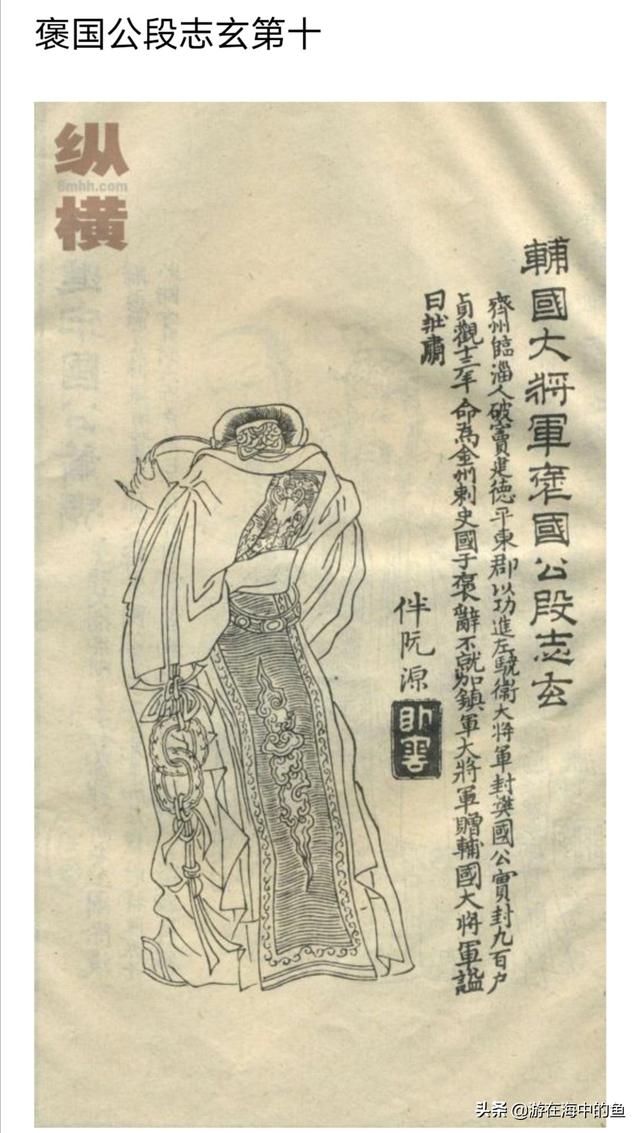 褒国公段志玄第十
纵横
輔國大將軍褒國公段志玄
齊州臨淄人破竇建德平東郡以功進左驍衛大將軍封樊國公實封九百户
貞觀年命為金州刺史國于褒辭不就加鎮軍大將軍贈輔國大將軍謚
曰壯肅
伴阮源
头条 @游在海中的鱼